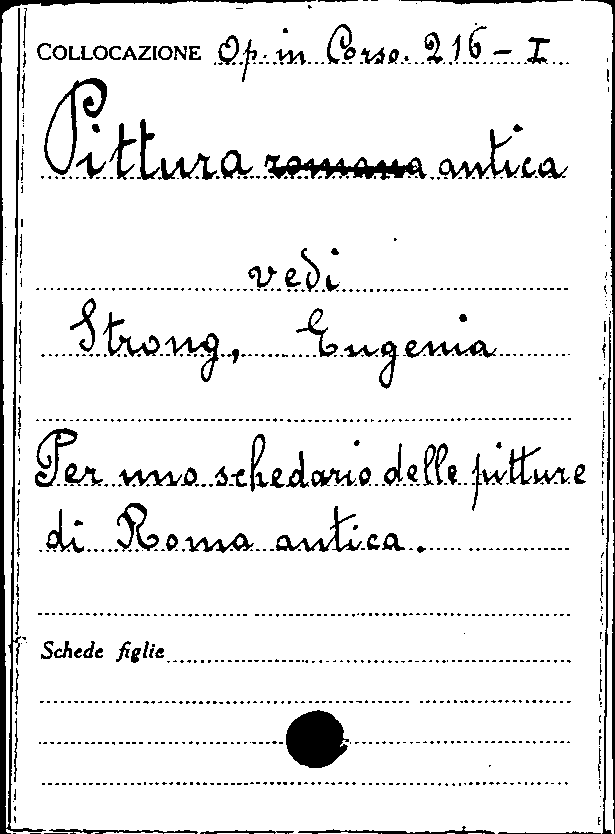 COLLOCAZIONE Op. in Corso. 216 - I
Pittura romana antica
vedi
Strong, Eugenia
Per uno schedario delle pitture
di Roma antica.
Schede figlie